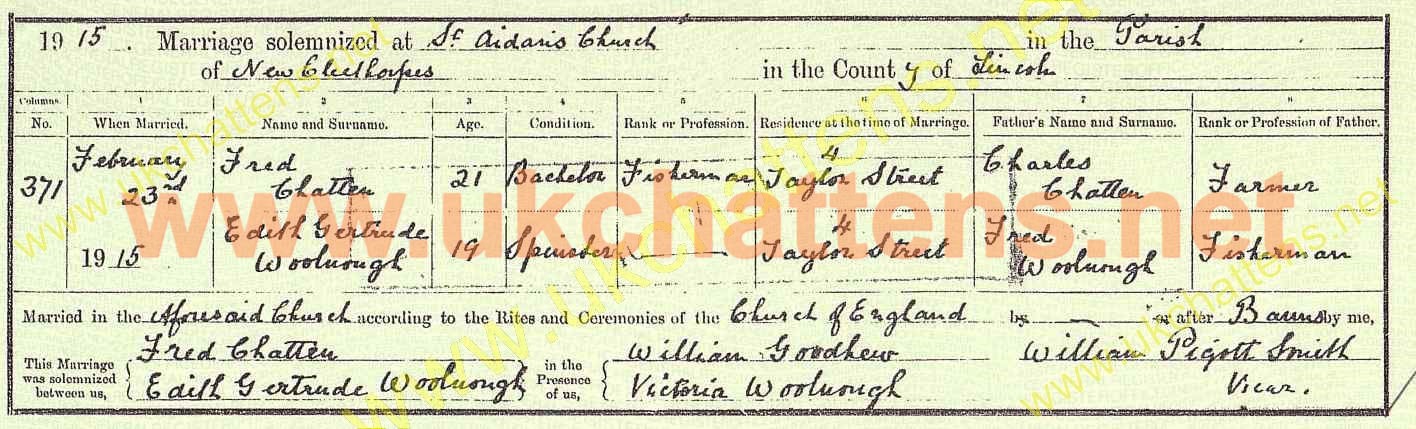 1915. Marriage solemnized at St Aidan's Church in the Parish
of New Cleethorpes in the County of Lincoln
Columns. 1 2 3 4 5 6 7 8
No. When Married. Name and Surname. Age. Condition. Rank or Profession. Residence at the time of Marriage. Father's Name and Surname. Rank or Profession of Father.
371 February 23rd Fred Chatten 21 Bachelor Fisherman 4 Taylor Street Charles Chatten Farmer
1915 Edith Gertrude Woolnough 19 Spinster — 4 Taylor Street Fred Woolnough Fisherman
Married in the Aforesaid Church according to the Rites and Ceremonies of the Church of England by — or after Banns by me,
This Marriage was solemnized between us, Fred Chatten in the Presence of us, William Goodhew William Pigott Smith
Edith Gertrude Woolnough Victoria Woolnough Vicar.
www.ukchattens.net
www.ukchattens.net
www.ukchattens.net
www.ukchattens.net
www.ukchattens.net